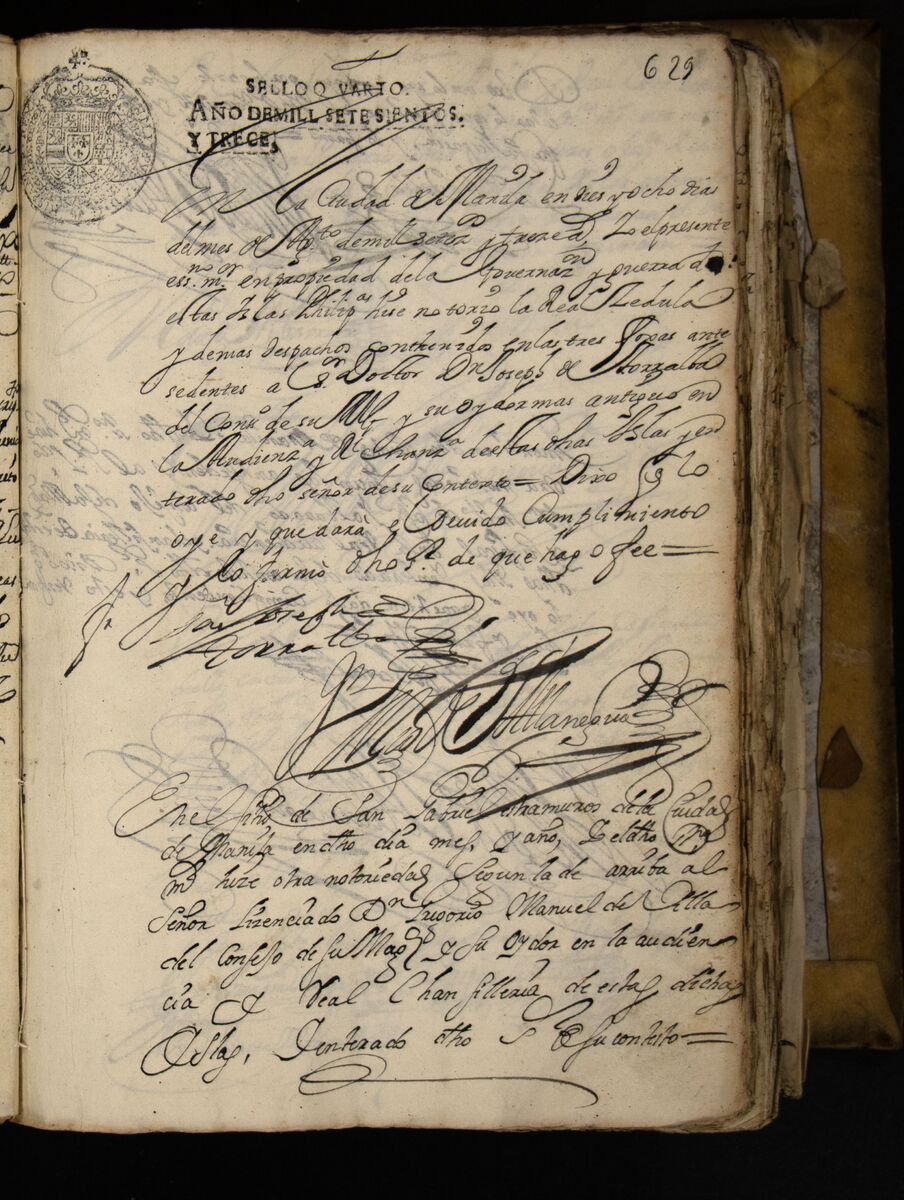 629
SELLO QVARTO.
AÑO DEMILL SETESIENTOS.
Y TRECE,
En la Ciudad de Manila en dies y ocho dias
del mes de Ag.to demil setez.s y treze a.s Yo el presente
ess.no m.or en propiedad dela Governaz.on y guerra de
estas Yslas Philip.as hise notorio la Real Zedula
y demas despachos contthenidos en las tres foxas ante
sedentes a el S.or Doctor D.n Joseph de Torralba
del Cons.o de su Mag. y su oydor mas antiguo en
la Audienz.a y R.l Chanz.a de estas dhas Yslas y en
terado dho señor de su Contexto = Dixo q. lo
oye y que darà el Devido Cumplimiento
y lo firmò dho S.r de que hago fee =
Joseph
Torralba
En el sitio de San Gabriel extramuros de la Ciudad
de Manila en dho dia mes, y año, Yo el dho
m.or hize otra notoriedad segun la de arriba al
Señor Lizenciado D.n Gregorio Manuel de Villa
del Consejo de su Mag.d y su oydor en la audien
cia y Real Chansilleria de estas dichas
Yslas, y enterado dho S.r de su contesto =